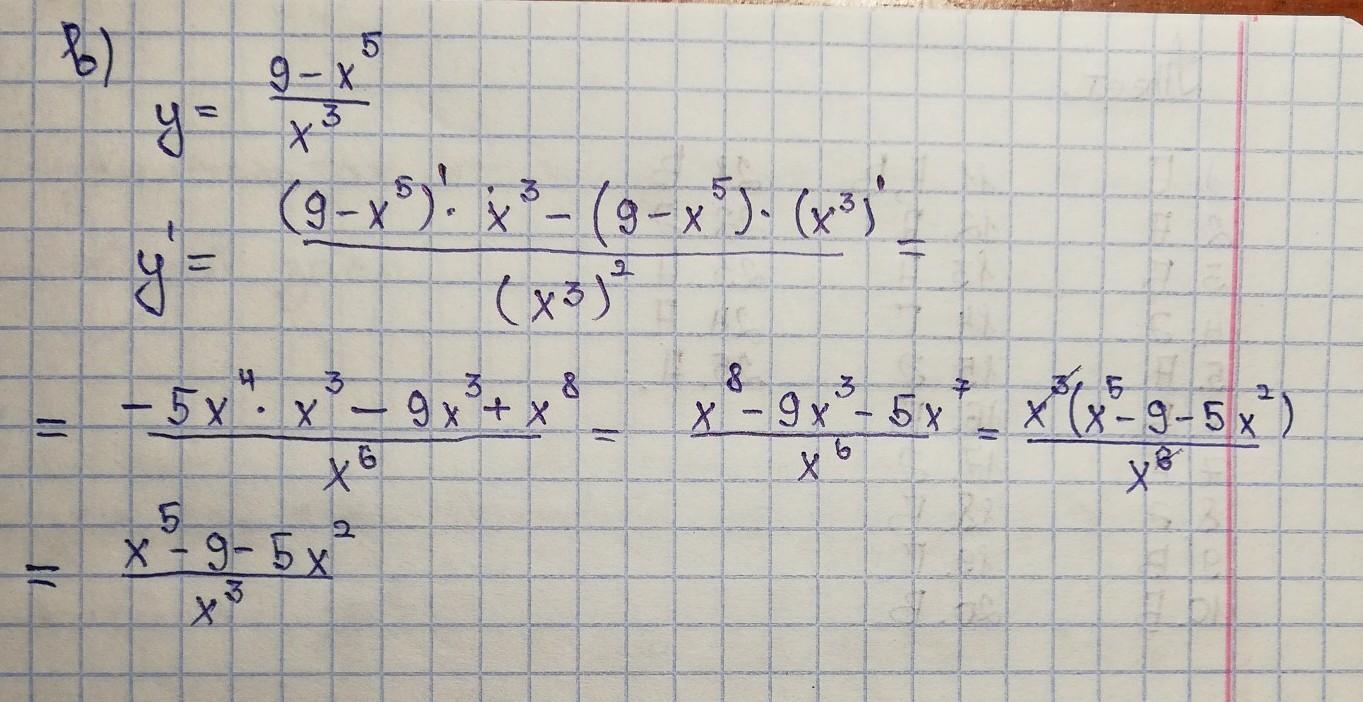 в)
y = (9 - x^5)/(x^3)
y' = ((9 - x^5)' · x^3 - (9 - x^5) · (x^3)')/((x^3)^2) =
= (-5x^4 · x^3 - 9x^3 + x^8)/(x^6) = (x^8 - 9x^3 - 5x^7)/(x^6) = (x^3(x^5 - 9 - 5x^2))/(x^6)
= (x^5 - 9 - 5x^2)/(x^3)